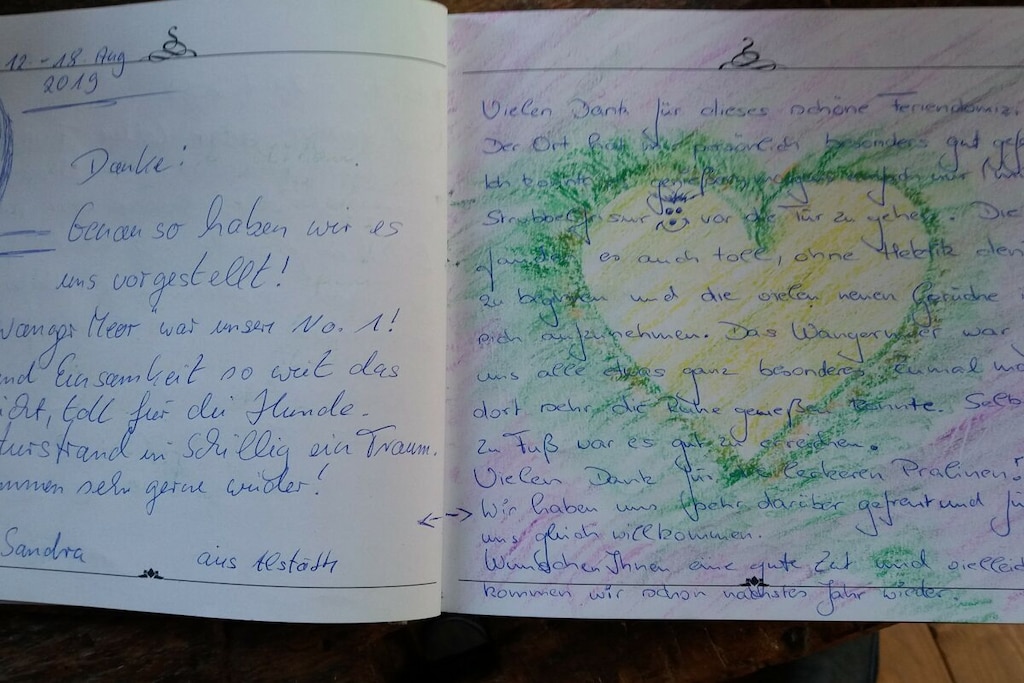 12.-18. Aug
2019
Danke!
Genau so haben wir es
uns vorgestellt!
Wanger Meer" war unsere No. 1!
und Einsamkeit so weit das
toll für die Hunde.
in Schillig ein Traum.
kommen sehr gerne wieder!
Sandra aus Alstätte
Vielen Dank für dieses schöne Feriendomizi
Der Ort hat mir persönlich besonders gut gef
Ich konnte genießen, morgens einfach nur
vor die Tür zu gehen. Die
fanden es auch toll, ohne Hektik den
zu beginnen und die vielen neuen Gerüche
aufzunehmen. Das Wangermeer war
uns alle etwas ganz besonderes, einmal
dort sehr die Ruhe genießen konnte. Selb
zu Fuß war es gut zu erreichen.
Vielen Dank für die leckeren Pralinen!
Wir haben uns sehr darüber gefreut und fü
uns gleich willkommen.
Wünschen Ihnen eine gute Zeit und vielleic
kommen wir schon nächstes Jahr wieder.